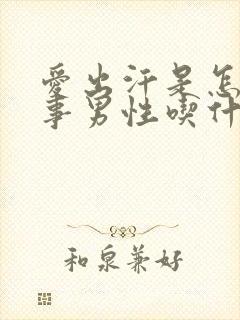 愛出汗是怎
事男性喫什
和泉兼好